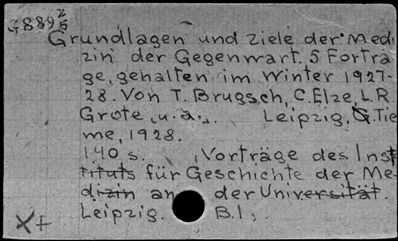 Grundlagen und Ziele der Medi
zin der Gegenwart. 5 Forträ
ge, gehalten im Winter 1927-
28. Von T. Brugsch, C. Elze, L. R.
Grote, u. a. Leipzig, G. Tie
me, 1928.
140 s. Vorträge des Inst
tituts für Geschichte der Me-
dizin an der Universität.
Leipzig. B.1,.